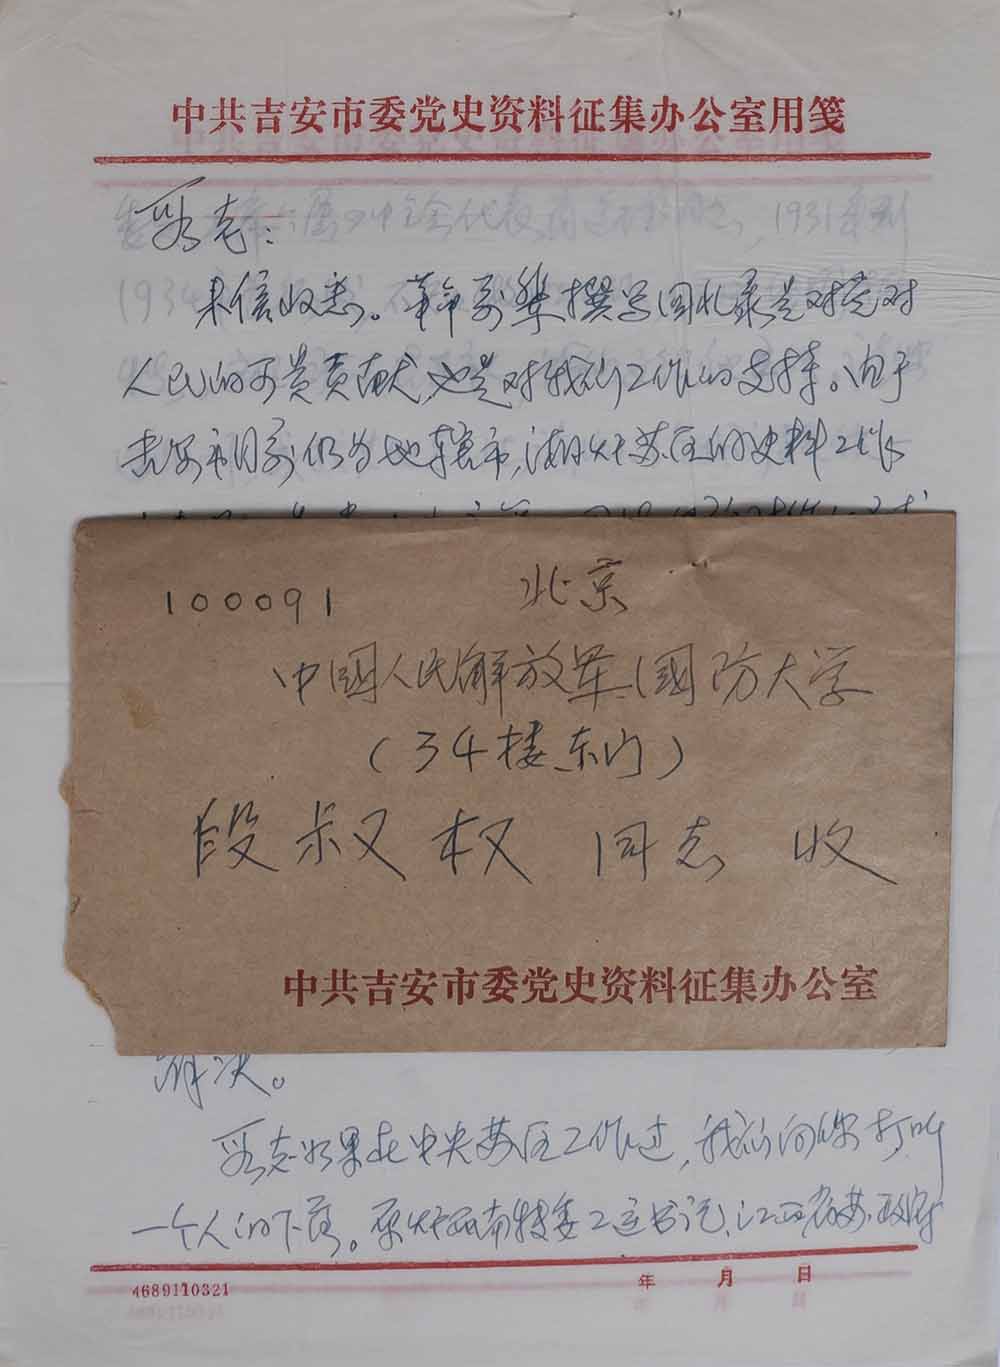 中共吉安市委党史资料征集办公室用笺
段老：
来信收悉。革命前辈撰写回忆录是对党对
人民的可贵贡献，也是对我们工作的支持。由于
吉安市目前仍为地辖市，湘赣苏区的史料工作
100091
北京
中國人民解放军國防大学
（34楼东门）
段叔权 同志 收
中共吉安市委党史资料征集办公室
解决。
段老如果在中央苏区工作过，我们向您打听
一个人的下落。原赣西南特委工运书记、江西省苏政府
4689110321
年 月 日